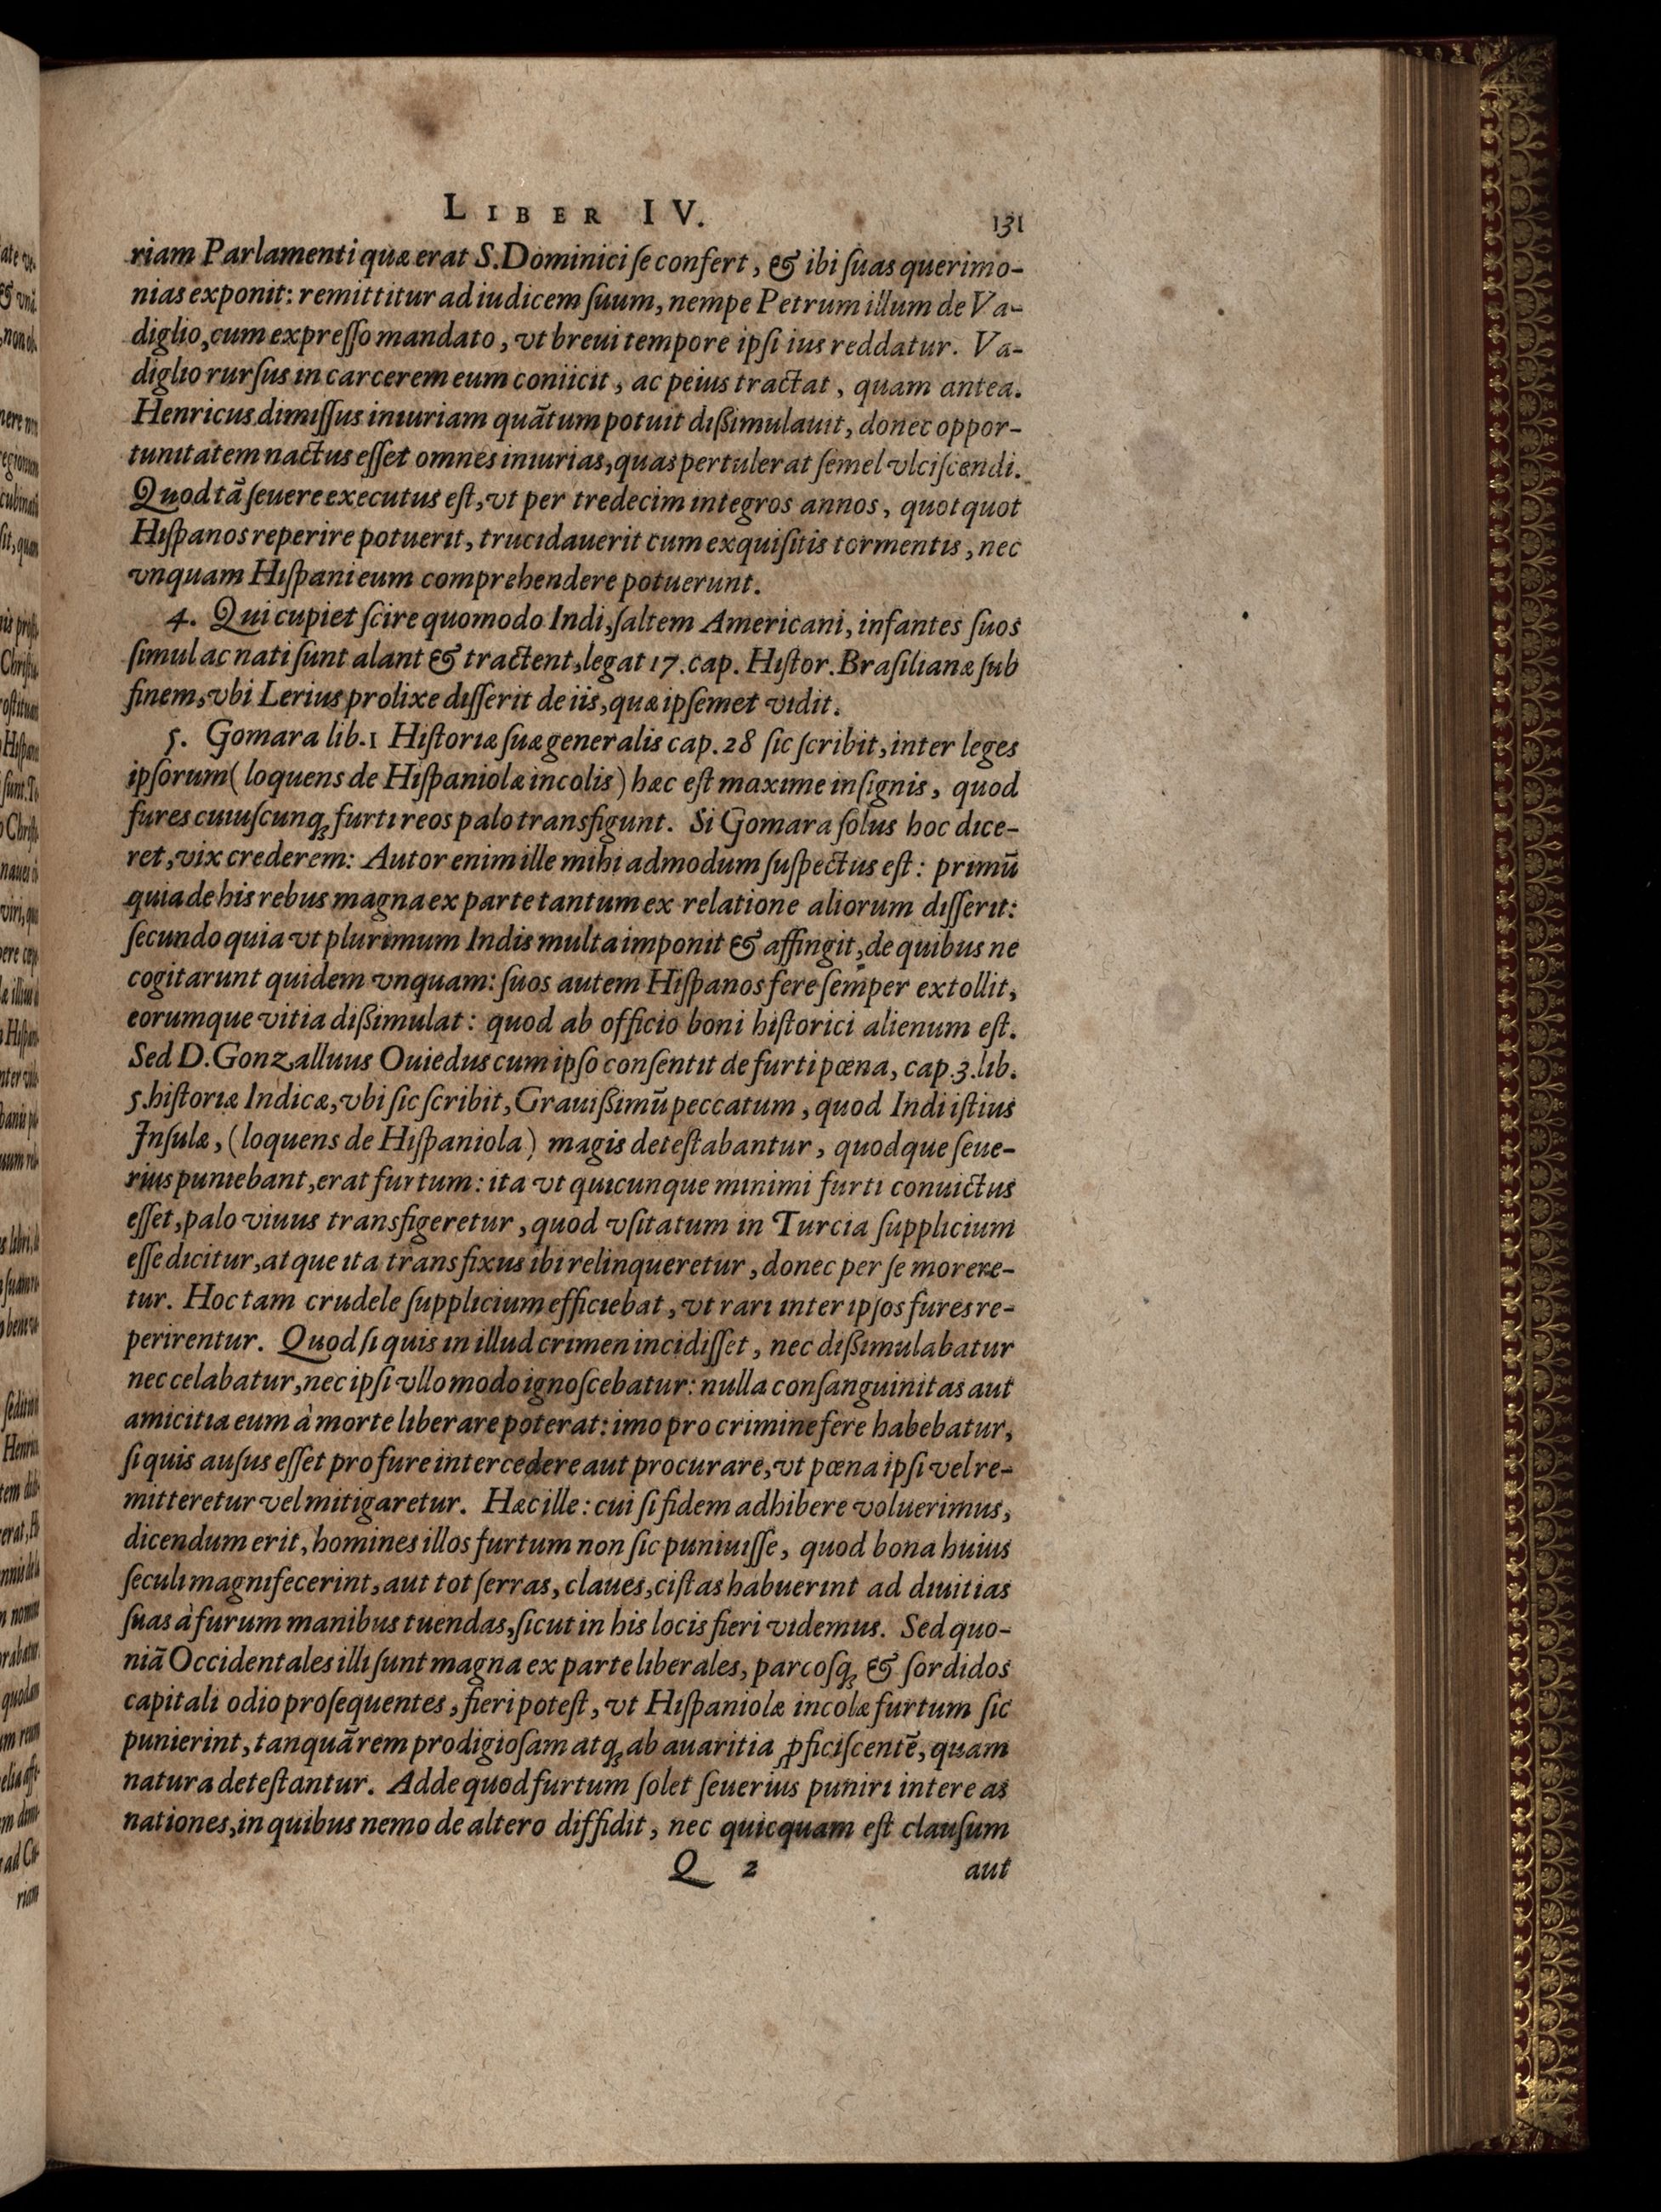 LIBER IV. 131
riam Parlamenti quæ erat S. Dominici ſe confert, & ibi ſuas querimo-
nias exponit: remittitur ad iudicem ſuum, nempe Petrum illum de Va-
diglio, cum expreſſo mandato, vt breui tempore ipſi ius reddatur. Va-
diglio rurſus in carcerem eum coniicit, ac peius tractat, quam antea.
Henricus dimiſſus iniuriam quãtum potuit dißimulauit, donec oppor-
tunitatem nactus eſſet omnes iniurias, quas pertulerat ſemel vlciſcendi.
Quod tã ſeuere executus eſt, vt per tredecim integros annos, quotquot
Hiſpanos reperire potuerit, trucidauerit cum exquiſitis tormentis, nec
vnquam Hiſpani eum comprehendere potuerunt.
4. Qui cupiet ſcire quomodo Indi, ſaltem Americani, infantes ſuos
ſimul ac nati ſunt alant & tractent, legat 17. cap. Hiſtor. Braſilianæ ſub
finem, vbi Lerius prolixe diſſerit de iis, quæ ipſemet vidit.
5. Gomara lib. 1 Hiſtoriæ ſuæ generalis cap. 28 ſic ſcribit, inter leges
ipſorum (loquens de Hiſpaniolæ incolis) hæc eſt maxime inſignis, quod
fures cuiuſcunq́ꝫ furti reos palo transfigunt. Si Gomara ſolus hoc dice-
ret, vix crederem: Autor enim ille mihi admodum ſuſpectus eſt: primũ
quia de his rebus magna ex parte tantum ex relatione aliorum diſſerit:
ſecundo quia vt plurimum Indis multa imponit & affingit, de quibus ne
cogitarunt quidem vnquam: ſuos autem Hiſpanos fere ſemper extollit,
eorumque vitia dißimulat: quod ab officio boni hiſtorici alienum eſt.
Sed D. Gonzalluus Ouiedus cum ipſo conſentit de furti pœna, cap. 3. lib.
5. hiſtoriæ Indicæ, vbi ſic ſcribit, Grauißimũ peccatum, quod Indi iſtius
Inſulæ, (loquens de Hiſpaniola) magis deteſtabantur, quodque ſeue-
rius puniebant, erat furtum: ita vt quicunque minimi furti conuictus
eſſet, palo viuus transfigeretur, quod vſitatum in Turcia ſupplicium
eſſe dicitur, atque ita transfixus ibi relinqueretur, donec per ſe morere-
tur. Hoc tam crudele ſupplicium efficiebat, vt rari inter ipſos fures re-
perirentur. Quod ſi quis in illud crimen incidiſſet, nec dißimulabatur
nec celabatur, nec ipſi vllo modo ignoſcebatur: nulla conſanguinitas aut
amicitia eum à morte liberare poterat: imo pro crimine fere habebatur,
ſi quis auſus eſſet pro fure intercedere aut procurare, vt pœna ipſi vel re-
mitteretur vel mitigaretur. Hæc ille: cui ſi fidem adhibere voluerimus,
dicendum erit, homines illos furtum non ſic puniuiſſe, quod bona huius
ſeculi magnifecerint, aut tot ſerras, claues, ciſtas habuerint ad diuitias
ſuas à furum manibus tuendas, ſicut in his locis fieri videmus. Sed quo-
niã Occidentales illi ſunt magna ex parte liberales, parcoſqꝫ & ſordidos
capitali odio proſequentes, fieri poteſt, vt Hiſpaniolæ incolæ furtum ſic
punierint, tanquã rem prodigioſam atqꝫ ab auaritia ꝓficiſcentẽ, quam
natura deteſtantur. Adde quod furtum ſolet ſeuerius puniri inter eas
nationes, in quibus nemo de altero diffidit, nec quicquam eſt clauſum
Q 2 aut